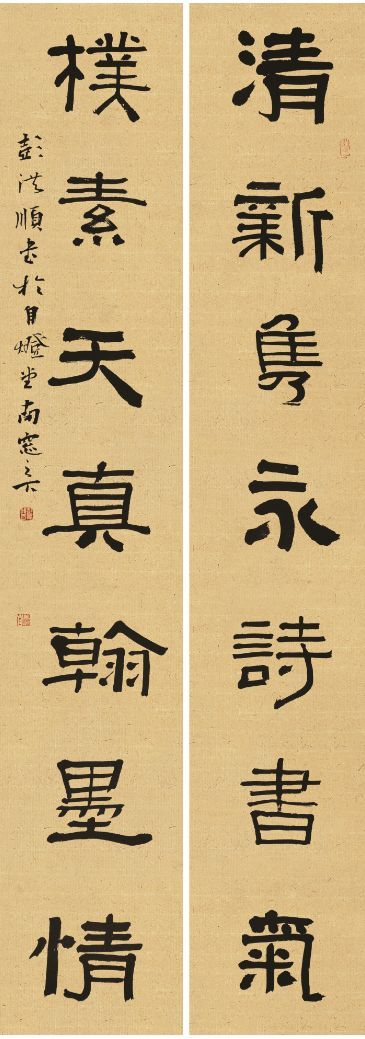 清新雋永詩書氣
樸素天真翰墨情
彭洪順書於目燈堂南窓之下